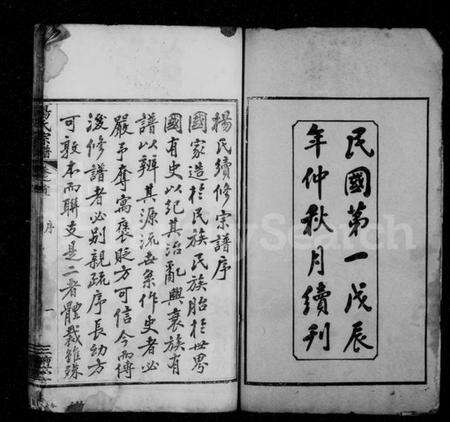 民國第一戊辰
年仲秋月續刊
楊氏續修宗譜序
國家造於民族民族胎於世界
國有史以記其治亂興衰族有
譜以辨其源流世系作史者必
嚴予奪寓褒貶方可信今而傳
後修譜者必別親疏序長幼方
可敦本而聯支是二者體裁雖殊
楊氏宗譜
序
一